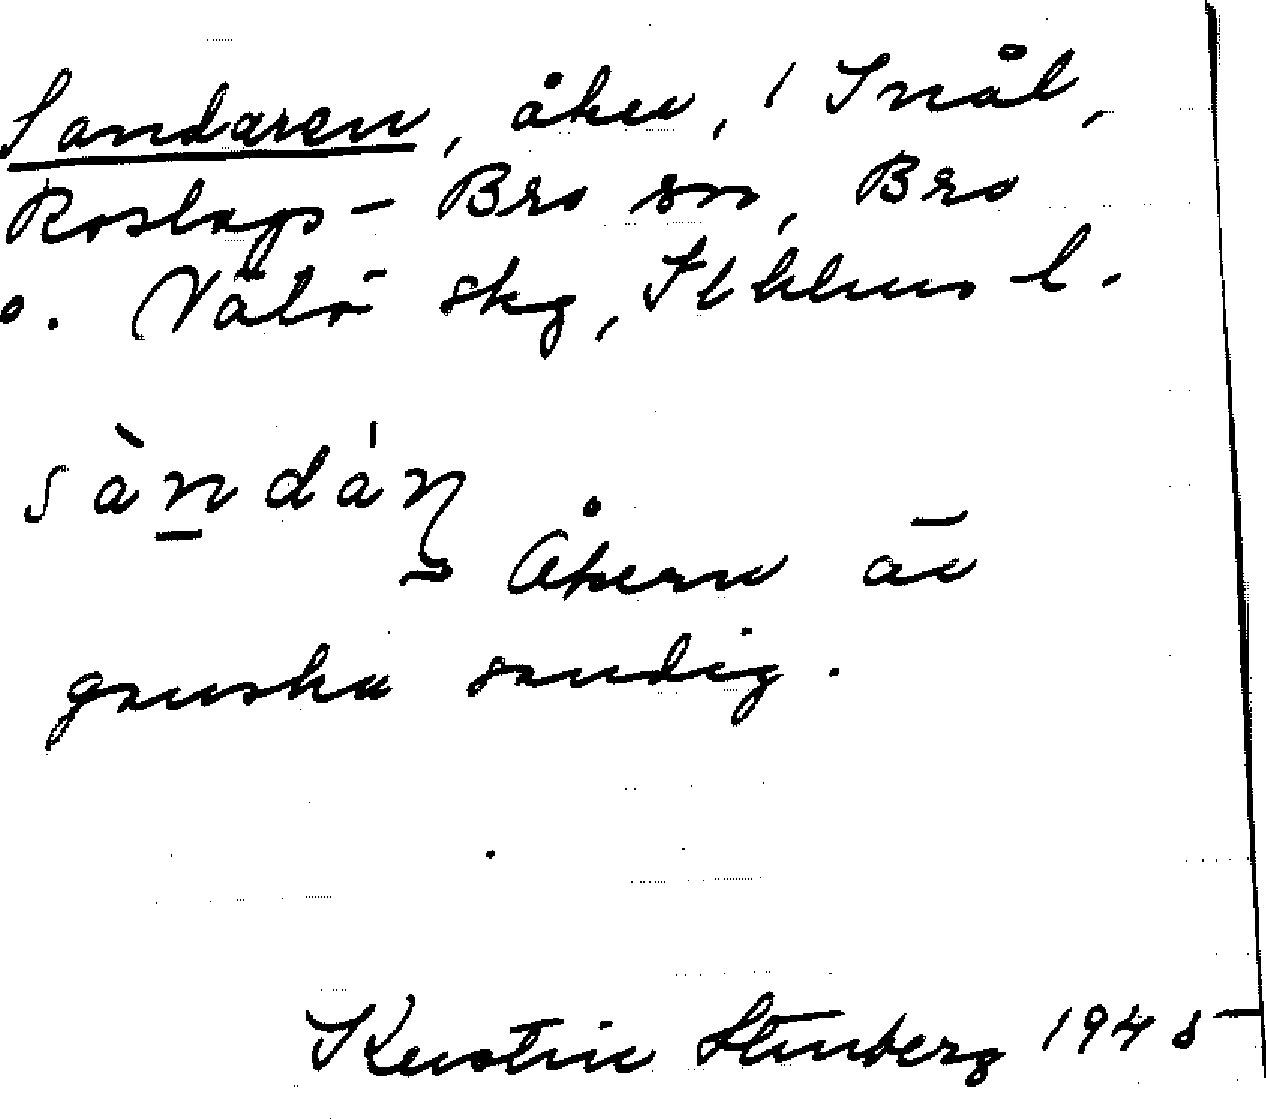 Sandaren, åker, 1 Snål,
Roslags-Bro sn, Bro
o. Vätö skg, Sthlms l.
sàn̲dáṇ
Åkern är
ganska sandig.
Kerstin Stenberg 1945